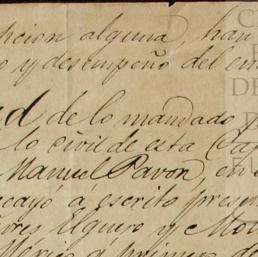 pcion alguna, han
o y desempeño del em
d de lo mandado p
lo civil de esta Ca
Manuel Pavon, en
cayó á escrito presen
ores Elguero y Mo
Mexico á primero de